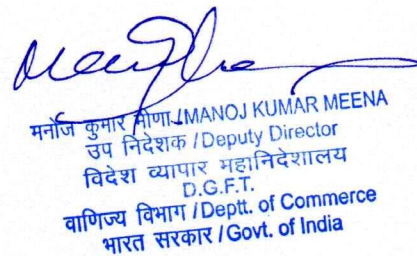 मनोज कुमार मीणा/MANOJ KUMAR MEENA
उप निदेशक /Deputy Director
विदेश व्यापार महानिदेशालय
D.G.F.T.
वाणिज्य विभाग /Deptt. of Commerce
भारत सरकार /Govt. of India